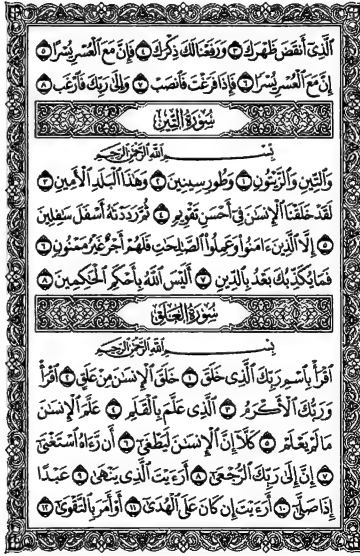 ٱلَّذِىٓ أَنقَضَ ظَهْرَكَ ٣ وَرَفَعْنَا لَكَ ذِكْرَكَ ٤ فَإِنَّ مَعَ ٱلْعُسْرِ يُسْرًا ٥
إِنَّ مَعَ ٱلْعُسْرِ يُسْرًا ٦ فَإِذَا فَرَغْتَ فَٱنصَبْ ٧ وَإِلَىٰ رَبِّكَ فَٱرْغَب ٨
سُورَةُ التِّينِ
بِسْمِ ٱللَّهِ ٱلرَّحْمَٰنِ ٱلرَّحِيمِ
وَٱلتِّينِ وَٱلزَّيْتُونِ ١ وَطُورِ سِينِينَ ٢ وَهَٰذَا ٱلْبَلَدِ ٱلْأَمِينِ ٣
لَقَدْ خَلَقْنَا ٱلْإِنسَٰنَ فِىٓ أَحْسَنِ تَقْوِيمٍ ٤ ثُمَّ رَدَدْنَٰهُ أَسْفَلَ سَٰفِلِينَ
٥ إِلَّا ٱلَّذِينَ ءَامَنُوا۟ وَعَمِلُوا۟ ٱلصَّٰلِحَٰتِ فَلَهُمْ أَجْرٌ غَيْرُ مَمْنُونٍ ٦
فَمَا يُكَذِّبُكَ بَعْدُ بِٱلدِّينِ ٧ أَلَيْسَ ٱللَّهُ بِأَحْكَمِ ٱلْحَٰكِمِينَ ٨
سُورَةُ العَلَقِ
بِسْمِ ٱللَّهِ ٱلرَّحْمَٰنِ ٱلرَّحِيمِ
ٱقْرَأْ بِٱسْمِ رَبِّكَ ٱلَّذِى خَلَقَ ١ خَلَقَ ٱلْإِنسَٰنَ مِنْ عَلَقٍ ٢ ٱقْرَأْ
وَرَبُّكَ ٱلْأَكْرَمُ ٣ ٱلَّذِى عَلَّمَ بِٱلْقَلَمِ ٤ عَلَّمَ ٱلْإِنسَٰنَ
مَا لَمْ يَعْلَمْ ٥ كَلَّآ إِنَّ ٱلْإِنسَٰنَ لَيَطْغَىٰٓ ٦ أَن رَّءَاهُ ٱسْتَغْنَىٰٓ
٧ إِنَّ إِلَىٰ رَبِّكَ ٱلرُّجْعَىٰٓ ٨ أَرَءَيْتَ ٱلَّذِى يَنْهَىٰ ٩ عَبْدًا
إِذَا صَلَّىٰٓ ١٠ أَرَءَيْتَ إِن كَانَ عَلَى ٱلْهُدَىٰٓ ١١ أَوْ أَمَرَ بِٱلتَّقْوَىٰٓ ١٢